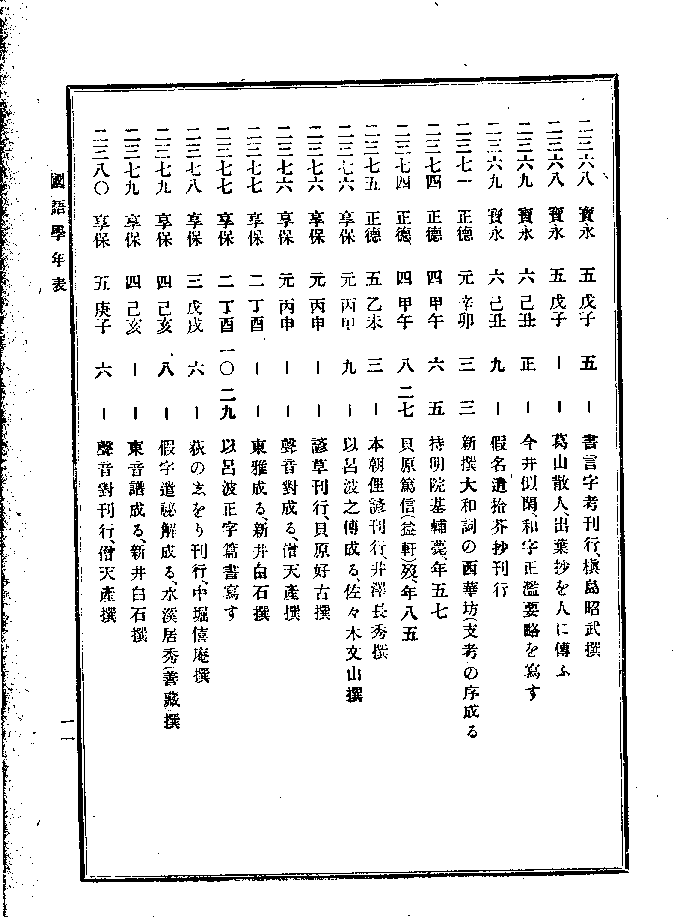 二三六八 寶永 五 戊子 五 ー 書言字考刊行、槇島昭武撰
二三六八 寶永 五 戊子 ー ー 葛山散人、出葉抄を人に傳ふ
二三六九 寶永 六 己丑 正 ー 今井似閑、和字正濫要略を寫す
二三六九 寶永 六 己丑 九 ー 假名遣拾芥抄刊行
二三七一 正德 元 辛卯 三 三 新撰大和詞の西華坊(支考の序成る
二三七四 正德 四 甲午 六 五 持明院基輔薨年五七
二三七四 正德 四 甲午 八 二七 貝原篤信(益軒)歿、年八五
二三七五 正德 五 乙未 三 ー 本朝俚諺刊行、井澤長秀撰
二三七六 享保 元 丙申 九 ー 以呂波之傳成る、佐々木文山撰
二三七六 享保 元 丙申 ー ー 諺草刊行、貝原好古撰
二三七六 享保 元 丙申 ー ー 聲音對成る、僧天產撰
二三七七 享保 二 丁酉 ー ー 東雅成る、新井白石撰
二三七七 享保 二 丁酉 一〇 二九 以呂波正字篇書寫す
二三七八 享保 三 戊戌 六 ー 荻のしをり刊行、中堀僖庵撰
二三七九 享保 四 己亥 八 ー 假字遣祕解成る、水溪居秀(善藏)撰
二三七九 享保 四 己亥 ー ー 東音譜成る、新井白石撰
二三八〇 享保 五 庚子 六 ー 聲音對刊行、僧天產撰
國語學年表
一一